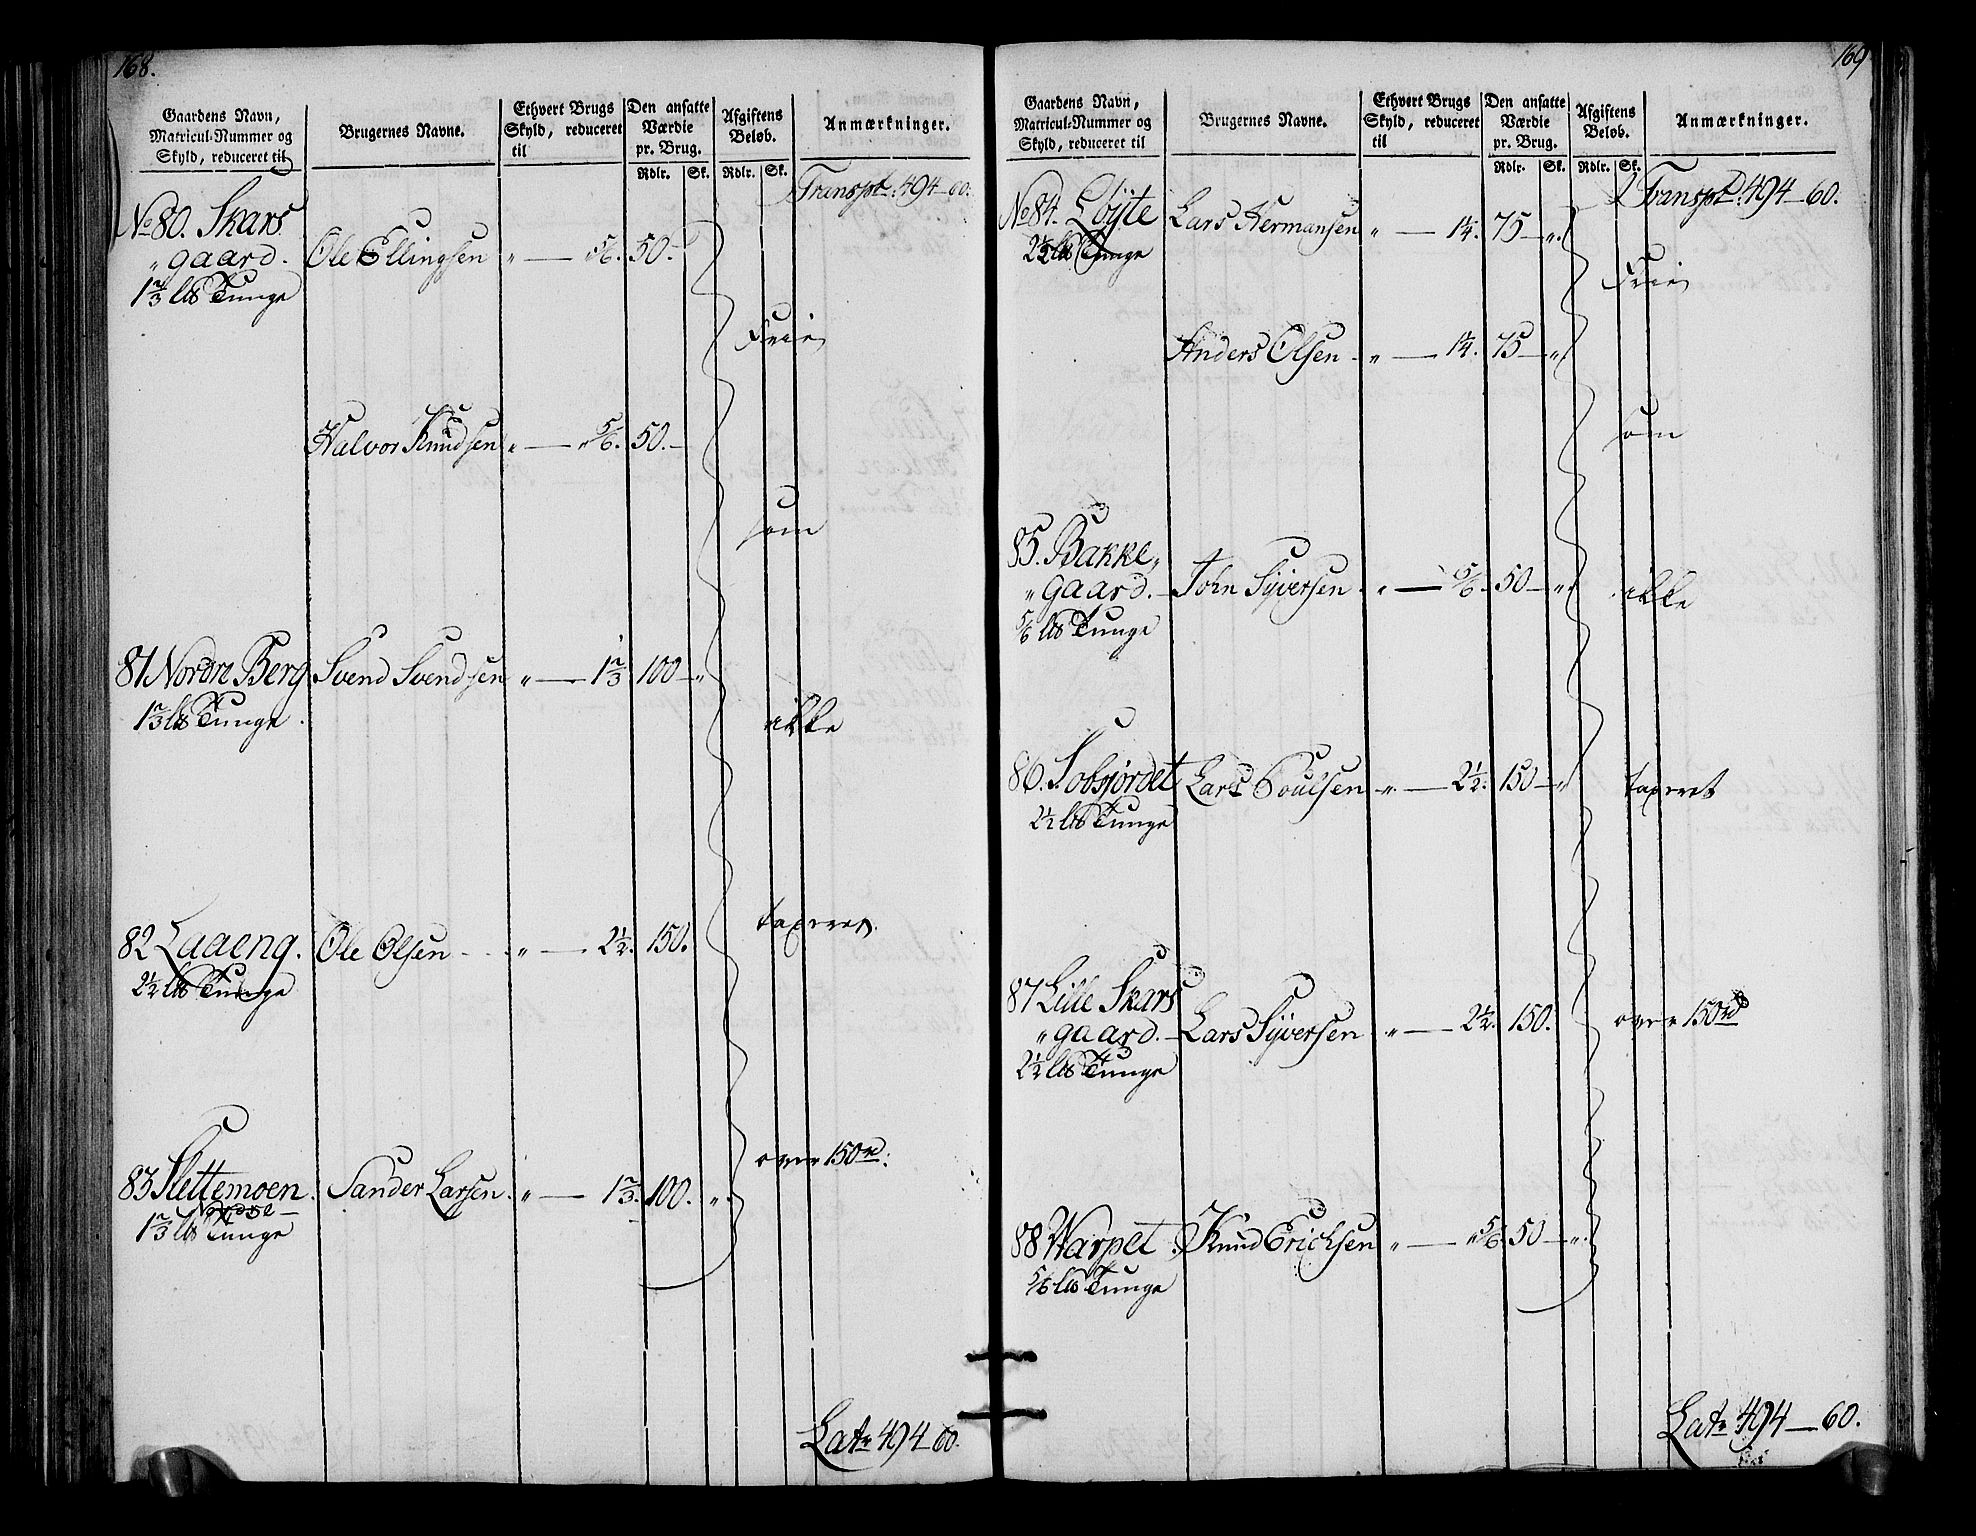 168.
Gaardens Navn,
Matricul-Nummer og
Skyld, reduceret til
Brugernes Navne.
Ethvert Brugs
Skyld, reduceret
til
Den ansatte
Værdie
pr. Brug.
Rdlr. Sk.
Afgiftens
Beløb.
Rdlr. Sk.
Anmærkninger.
Transpt. 494-60.
No 80. Skars
"gaard. Ole Ellingsen " — 5/6. 50.-
1 2/3 lb Tunge
Frie
Halvor Knudsen " — " 5/6. 50.-
som
81 Nordre Berg Svend Svendsen " — 1 2/3 100-"
1 2/3 lb Tunge.
ikke
taxeret.
82 Laaeng. Ole Olsen - . " — 2 1/2. 150.
2 1/2 lb Tunge
over 150 rd:
83 Slettemoen. Sander Larsen. " — 1 2/3. 100. "
1 2/3 lb Tunge
Latr 494-60.
169
Gaardens Navn,
Matricul-Nummer og
Skyld, reduceret til
Brugernes Navne.
Ethvert Brugs
Skyld, reduceret
til
Den ansatte
Værdie
pr. Brug.
Rdlr. Sk.
Afgiftens
Beløb.
Rdlr. Sk.
Anmærkninger.
Transpt. 494-60.
No 84. Løyte Lars Hermansen " — 1 1/4. 75-".
2 1/2 lb Tunge
Frie
Anders Olsen - " — 1 1/4. 75-"
som
85. Bakke„
"gaard. - John Syversen. " — 5/6. 50-"
5/6 lb Tunge
ikke
86. Lars Poulsen " — 2 1/2. 150-"
2 1/2 lb Tunge
taxeret
87 Lille Skars
"gaard. - Lars Syversen " — 2 1/2. 150.
2 1/2 lb Tunge
over 150 rd
88 Warpet. Knud Erichsen " — " 5/6. 50-".
5/6 lb Tunge
Latr 494-60.